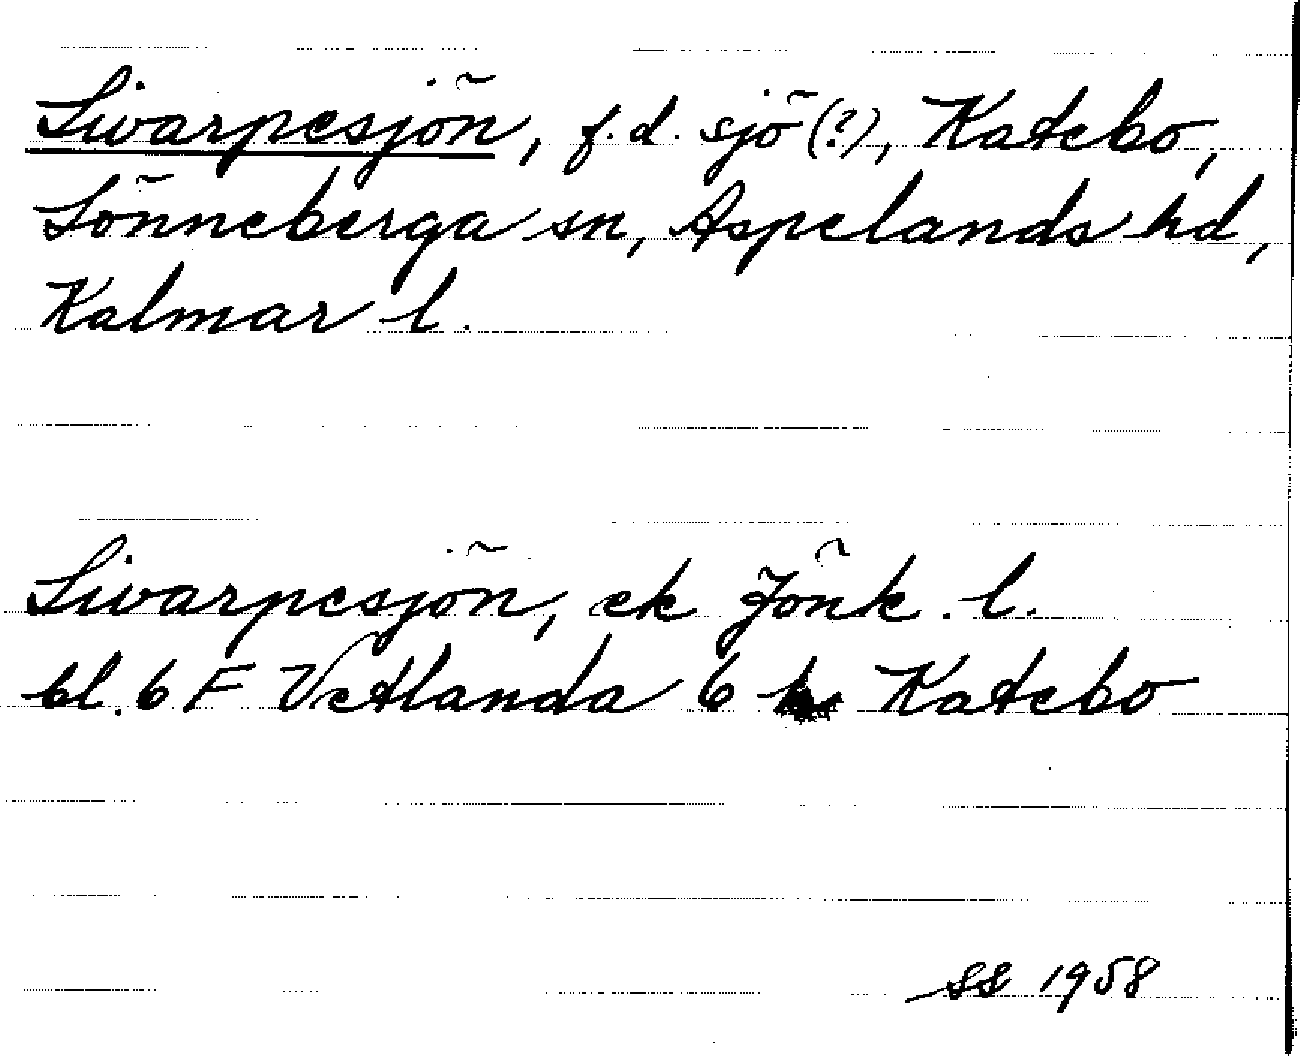 Livarpesjön, f.d. sjö (?), Katebo,
Lönneberga sn, Aspelands hd,
Kalmar l.
Livarpesjön, ek Jönk. l.
bl. 6 F Vetlanda 6 h Katebo
SS 1958